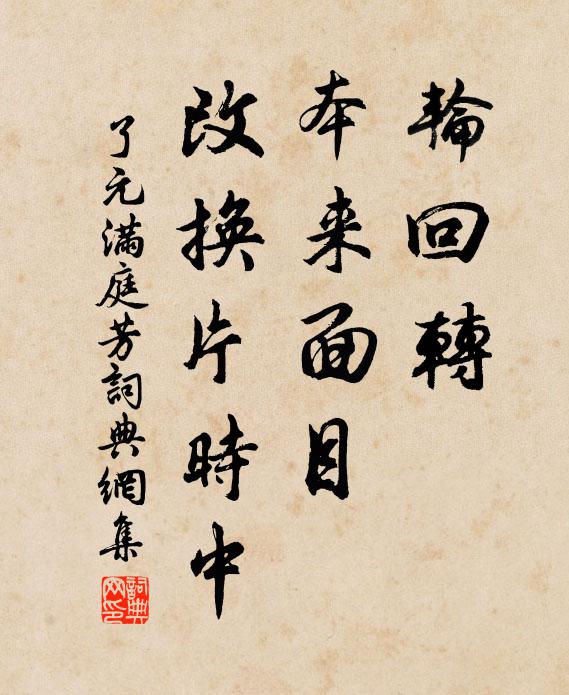 輪回轉
本来面目
改換片時中
了元滿庭芳詞典網集
詞典網印